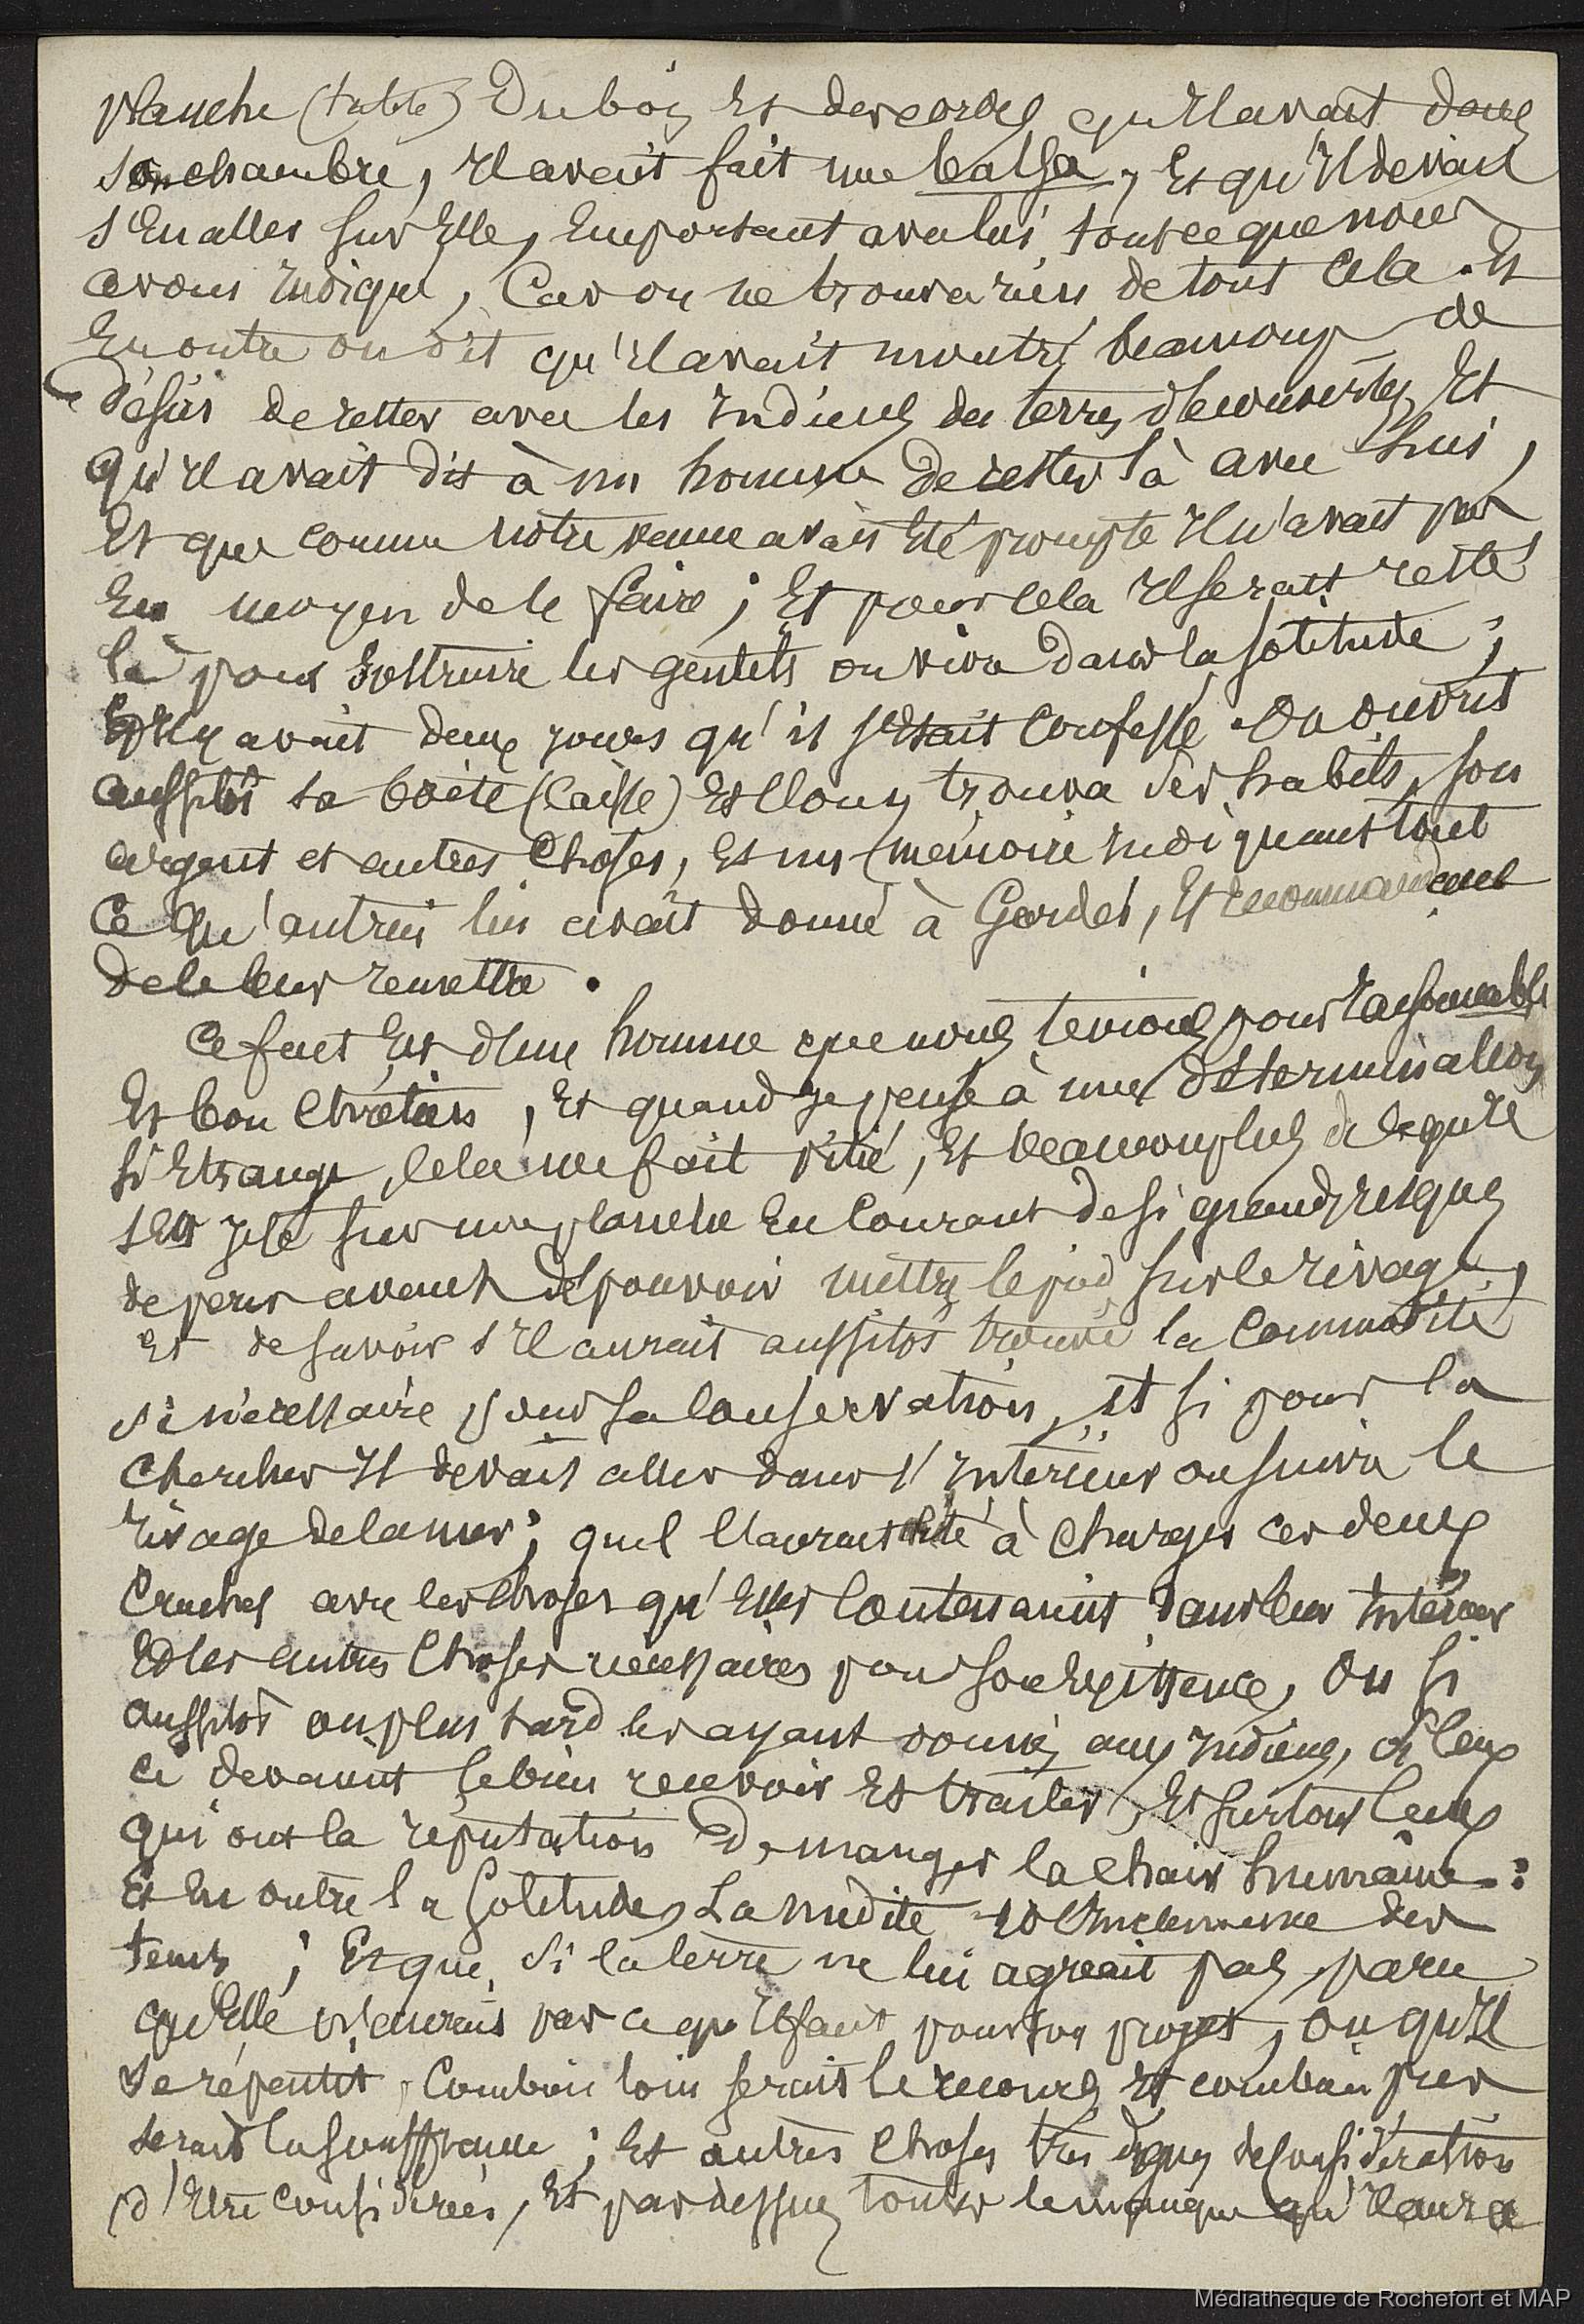 planche (table) Du bois Et des cordes qu'Il avait dans
son chambre, Il avait fait une balsa, Et qu'Il devait
s'En aller sur Elle, Emportant avec lui tout ce que nous
avons Indiqué, Car on ne trouva rien de tout Cela. Et
En outre on dit qu'Il avait montré beaucoup de
désirs de rester avec les Indiens des terres découvertes, Et
qu'Il avait dit à un homme de rester là avec lui,
Et que comme notre venue avait Eté prompte Il n'avait pas
Eu moyen de le faire; Et pour Cela Il serait resté
là pour Instruire les gentils ou vivre dans la solitude;
Et Il y avait deux jours qu'il s'Etait Confessé. On ouvrit
aussitôt sa boîte (Caisse) Et l'on y trouva des habits, son
argent et autres Choses, Et un mémoire Indiquant tout
Ce qu'autrui lui avait donné à Garder, Et recommandant
de le leur remettre.
Ce fut Est d'un homme que nous tenions pour raisonnable
Et bon Chrétien, Et quand je pense à une détermination
si Etrange, Cela me fait pitié, Et beaucoup plus de ce qu'Il
s'Est jeté sur une planche En Courant de si grands risques
de périr avant de pouvoir mettre le pied sur le rivage,
Et de savoir s'Il aurait aussitôt trouvé la Commodité
si nécessaire pour sa Conservation, et si pour la
Chercher Il devait aller dans l'Intérieur ou suivre le
rivage de la mer; quel Il aurait été à Charger ces deux
Cruches avec les Choses qu'Elles Contenaient dans leur Intérieur
Et les autres Choses nécessaires pour son Existence, Ou si
aussitôt ou plus tard les ayant donnés aux Indiens, si Ceux
ci devaient le bien recevoir Et traiter, Et surtout Ceux
qui ont la réputation De manger la Chair humaine:
Et En outre la Solitude, La nudité Et l'Inclémence des
tems; Et que si la terre ne lui agréait pas, parce
qu'Elle n'aurait pas ce qu'Il faut pour son projet, Ou qu'Il
se répentit, Combien loin serait le recours Et combien près
serait la souffrance; Et autres Choses très dignes de Considération
d'Etre considérées, Et par dessus toutes le manque qu'Il aura
Médiathèque de Rochefort et MAP